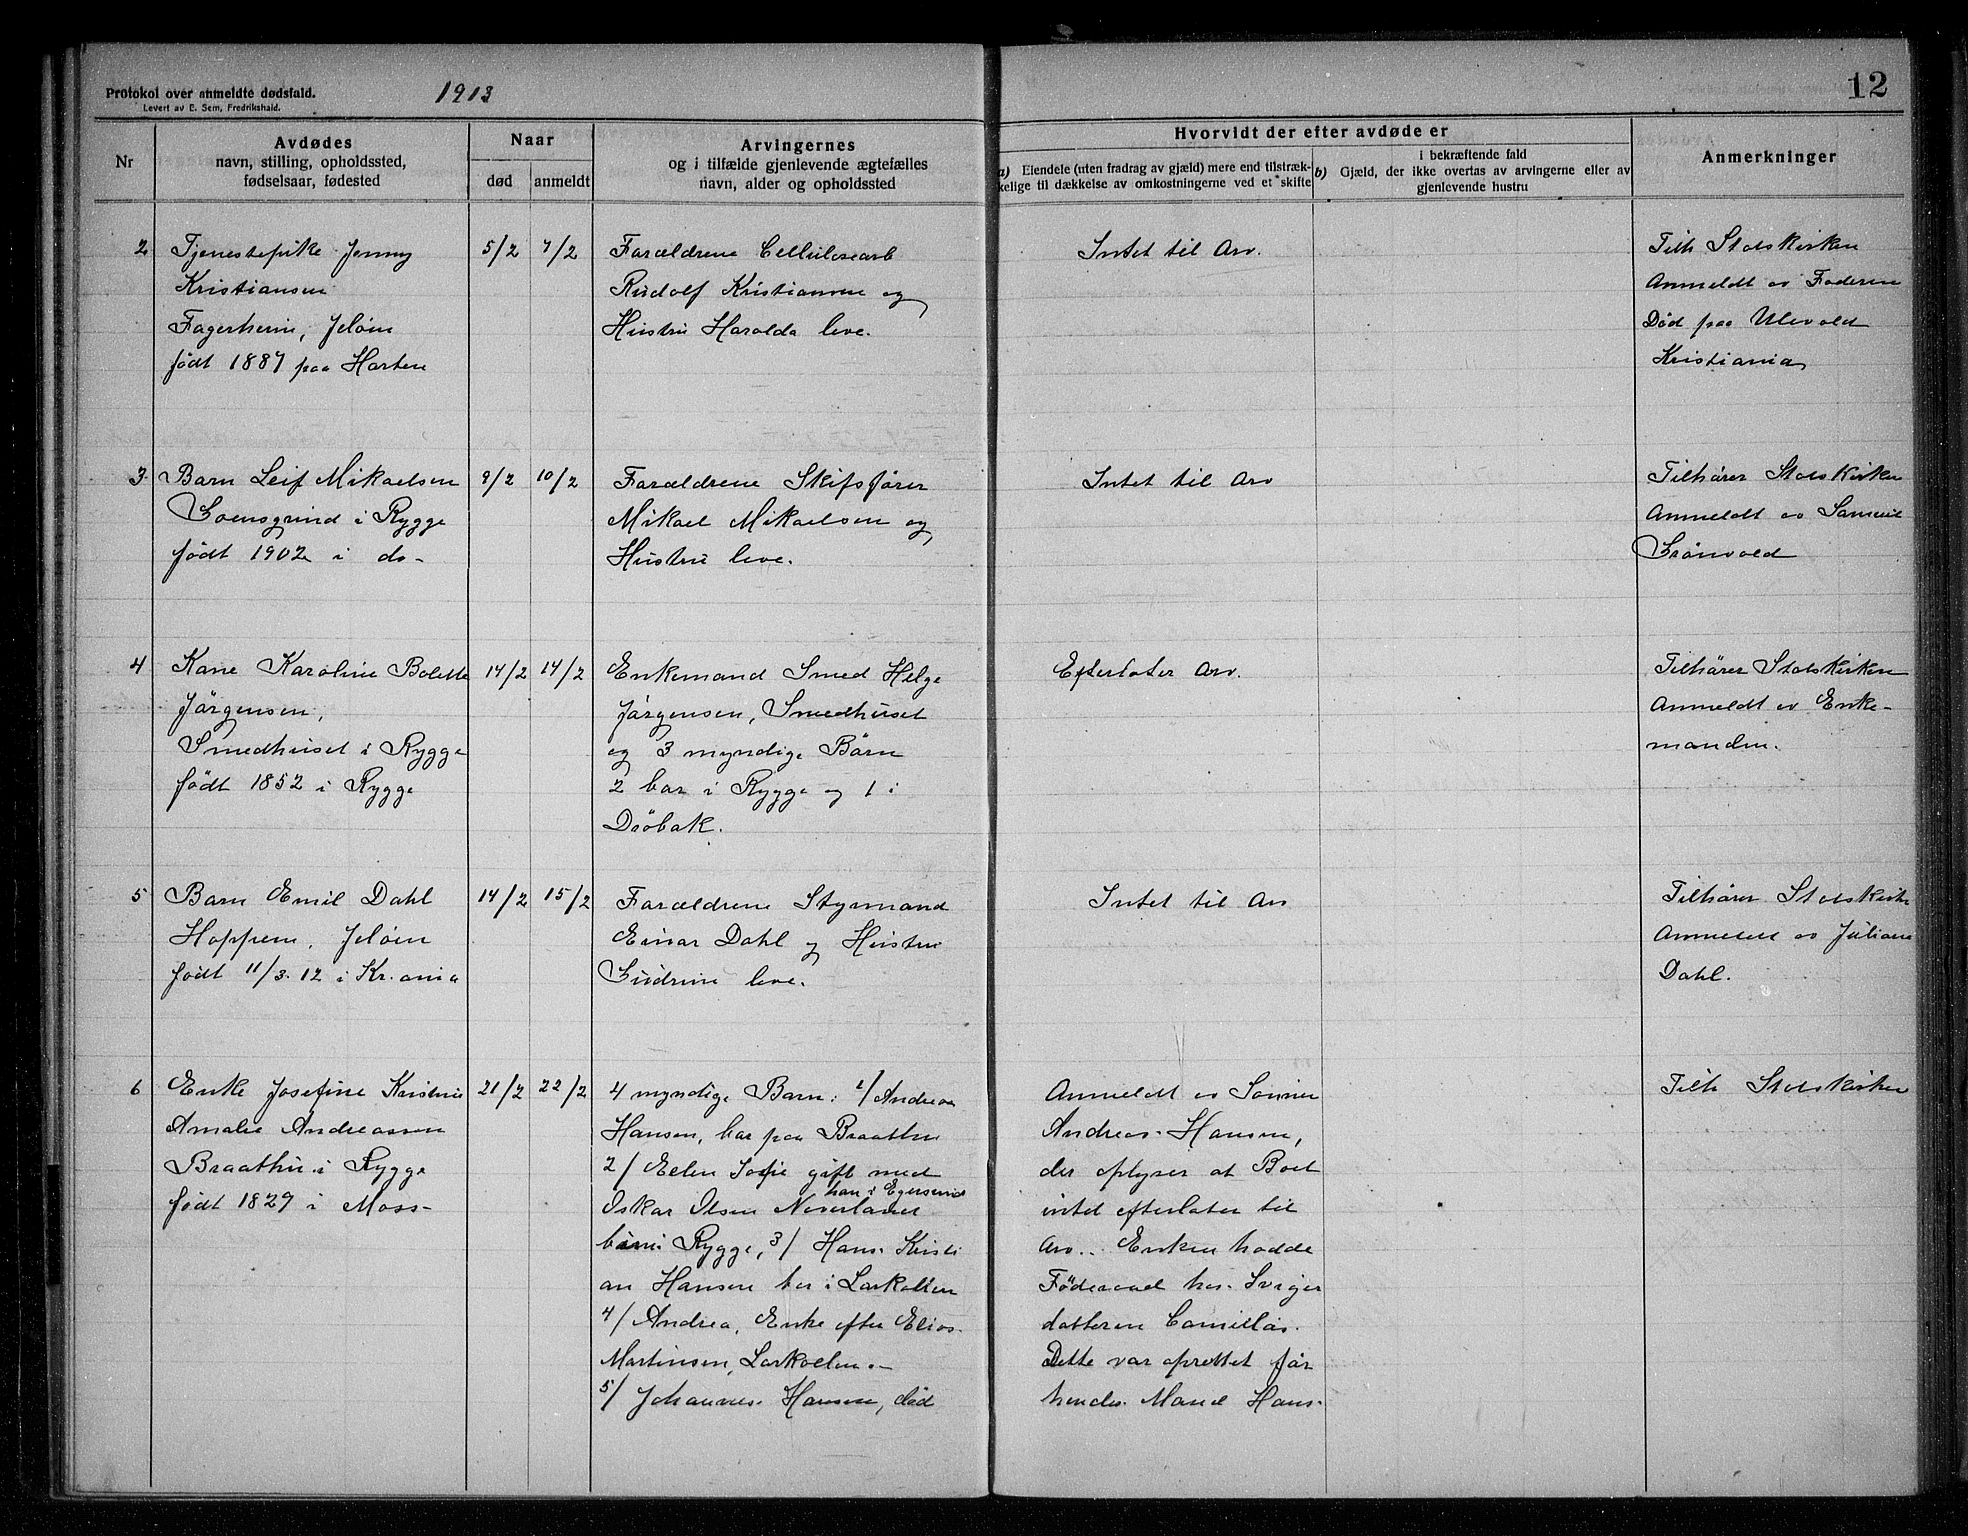 Protokol over anmeldte dødsfald.
Levert av E. Sem, Fredrikshald.
1913
12
Nr
Avdødes
navn, stilling, opholdssted,
fødselsaar, fødested
Naar
død
anmeldt
Arvingernes
og i tilfælde gjenlevende ægtefælles
navn, alder og opholdssted
Hvorvidt der efter avdøde er
a) Eiendele (uten fradrag av gjæld) mere end tilstræk-
kelige til dækkelse av omkostningerne ved et skifte
i bekræftende fald
b) Gjæld, der ikke overtas av arvingerne eller av
gjenlevende hustru
Anmerkninger
2
Tjenestepike Jenny
Kristiansen
Fagerheim, Jeløen
født 1887 paa Horten
5/2
7/2
Forældrene Cellulosearb
Rudolf Kristiansen og
Hustru Harolda leve.
Intet til Arv.
Tilh Statskirken
Anmeldt av Faderen
Død paa Ulevold
Kristiania
3.
Barn Leif Mikaelsen
Goensgrind i Rygge
født 1902 i do-
9/2
10/2
Forældrene Skifsfører
Mikael Mikaelsen og
Hustru leve.
Intet til Arv
Tilhører Statskirken
Anmeldt av Samuel
Grønvold
4
Kone Karoline Bolette
Jørgensen,
Smedhuset i Rygge
født 1852 i Rygge
14/2
14/2
Enkemand Smed Helge
Jørgensen, Smedhuset
og 3 myndige Børn
2 bor i Rygge og 1 i
Drøbak.
Efterlater Arv.
Tilhører Statskirken
Anmeldt av Enke-
manden.
5
Barn Emil Dahl
Hoppern, Jeløen
født 11/3. 12 i Kr.ania
14/2
15/2
Forældrene Styrmand
Einar Dahl og Hustru
Gudrun leve.
Intet til Arv
Tilhører Statskirk
Anmeldt av Juliane
Dahl.
6
Enke Josefine Kristine
Amalie Andreassen
Braathen i Rygge
født 1829 i Moss-
21/2
22/2
4 myndige Barn: 1/ Andreas
Hansen, bor paa Braathen
2/ Ellen Sofie gift med
han i Egersund
Oskar Olsen
i Rygge, 3/ Hans Kristi
an Hansen bor i Larkollen
4/ Andrea, Enke efter Elias
Martinsen, Larkollen.-
5/ Johannes Hansen, død
Anmeldt av Sønnen
Andreas Hansen,
der oplyser at Boet
intet efterlater til
Arv.. Enken hadde
Føderaad hos Sviger
datteren Camillas.
Dette var oprettet før
hendes Mand Hans.
Tilh Statskirken